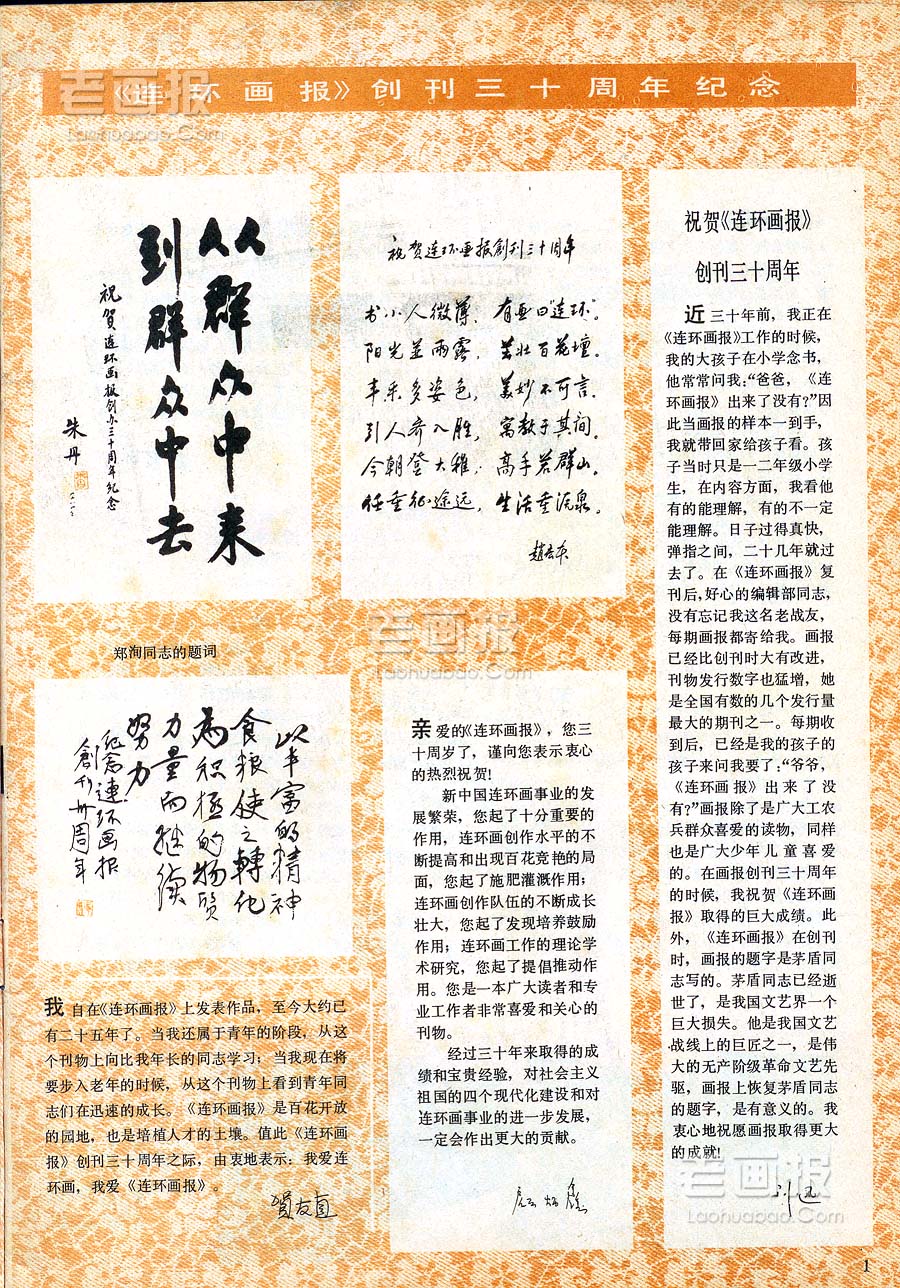 《连环画报》创刊三十周年纪念
老画报
Laohuabao.Com
从群众中来
到群众中去
祝贺连环画报创办三十周年纪念
朱丹
祝贺连环画报創刊三十周年
书小人微薄，有画曰“连环”。
阳光并雨露，茁壮百花壇。
丰采多姿色，美妙不可言。
引人齐入胜，寓教于其间。
今朝登大雅，高手若群山。
任重征途远，生活重流泉。
趙宏本
祝贺《连环画报》
创刊三十周年
近三十年前，我正在
《连环画报》工作的时候，
我的大孩子在小学念书，
他常常问我：“爸爸，《连
环画报》出来了没有？”因
此当画报的样本一到手，
我就带回家给孩子看。孩
子当时只是一二年级小学
生，在内容方面，我看他
有的能理解，有的不一定
能理解。日子过得真快，
弹指之间，二十几年就过
去了。在《连环画报》复
刊后，好心的编辑部同志，
没有忘记我这名老战友，
每期画报都寄给我。画报
已经比创刊时大有改进，
刊物发行数字也猛增，她
是全国有数的几个发行量
最大的期刊之一。每期收
到后，已经是我的孩子的
孩子来问我要了：“爷爷，
《连环画报》出来了没
有？”画报除了是广大工农
兵群众喜爱的读物，同样
也是广大少年儿童喜爱
的。在画报创刊三十周年
的时候，我祝贺《连环画
报》取得的巨大成绩。此
外，《连环画报》在创刊
时，画报的题字是茅盾同
志写的。茅盾同志已经逝
世了，是我国文艺界一个
巨大损失。他是我国文艺
战线上的巨匠之一，是伟
大的无产阶级革命文艺先
驱，画报上恢复茅盾同志
的题字，是有意义的。我
衷心地祝愿画报取得更大
的成就！
郑洵同志的题词
以丰富的精神
食粮使之轉化
为积極的物質
力量而继续
努力
纪念連环画报
創刊卅周年
老画报
Laohuabao.Com
亲爱的《连环画报》，您三
十周岁了，谨向您表示衷心
的热烈祝贺！
新中国连环画事业的发
展繁荣，您起了十分重要的
作用，连环画创作水平的不
断提高和出现百花竞艳的局
面，您起了施肥灌溉作用；
连环画创作队伍的不断成长
壮大，您起了发现培养鼓励
作用；连环画工作的理论学
术研究，您起了提倡推动作
用。您是一本广大读者和专
业工作者非常喜爱和关心的
刊物。
经过三十年来取得的成
绩和宝贵经验，对社会主义
祖国的四个现代化建设和对
连环画事业的进一步发展，
一定会作出更大的贡献。
顾炳鑫
我自在《连环画报》上发表作品，至今大约已
有二十五年了。当我还属于青年的阶段，从这
个刊物上向比我年长的同志学习；当我现在将
要步入老年的时候，从这个刊物上看到青年同
志们在迅速的成长。《连环画报》是百花开放
的园地，也是培植人才的土壤。值此《连环画
报》创刊三十周年之际，由衷地表示：我爱连
环画，我爱《连环画报》。
賀友直
老画报
Laohuabao.Com
1